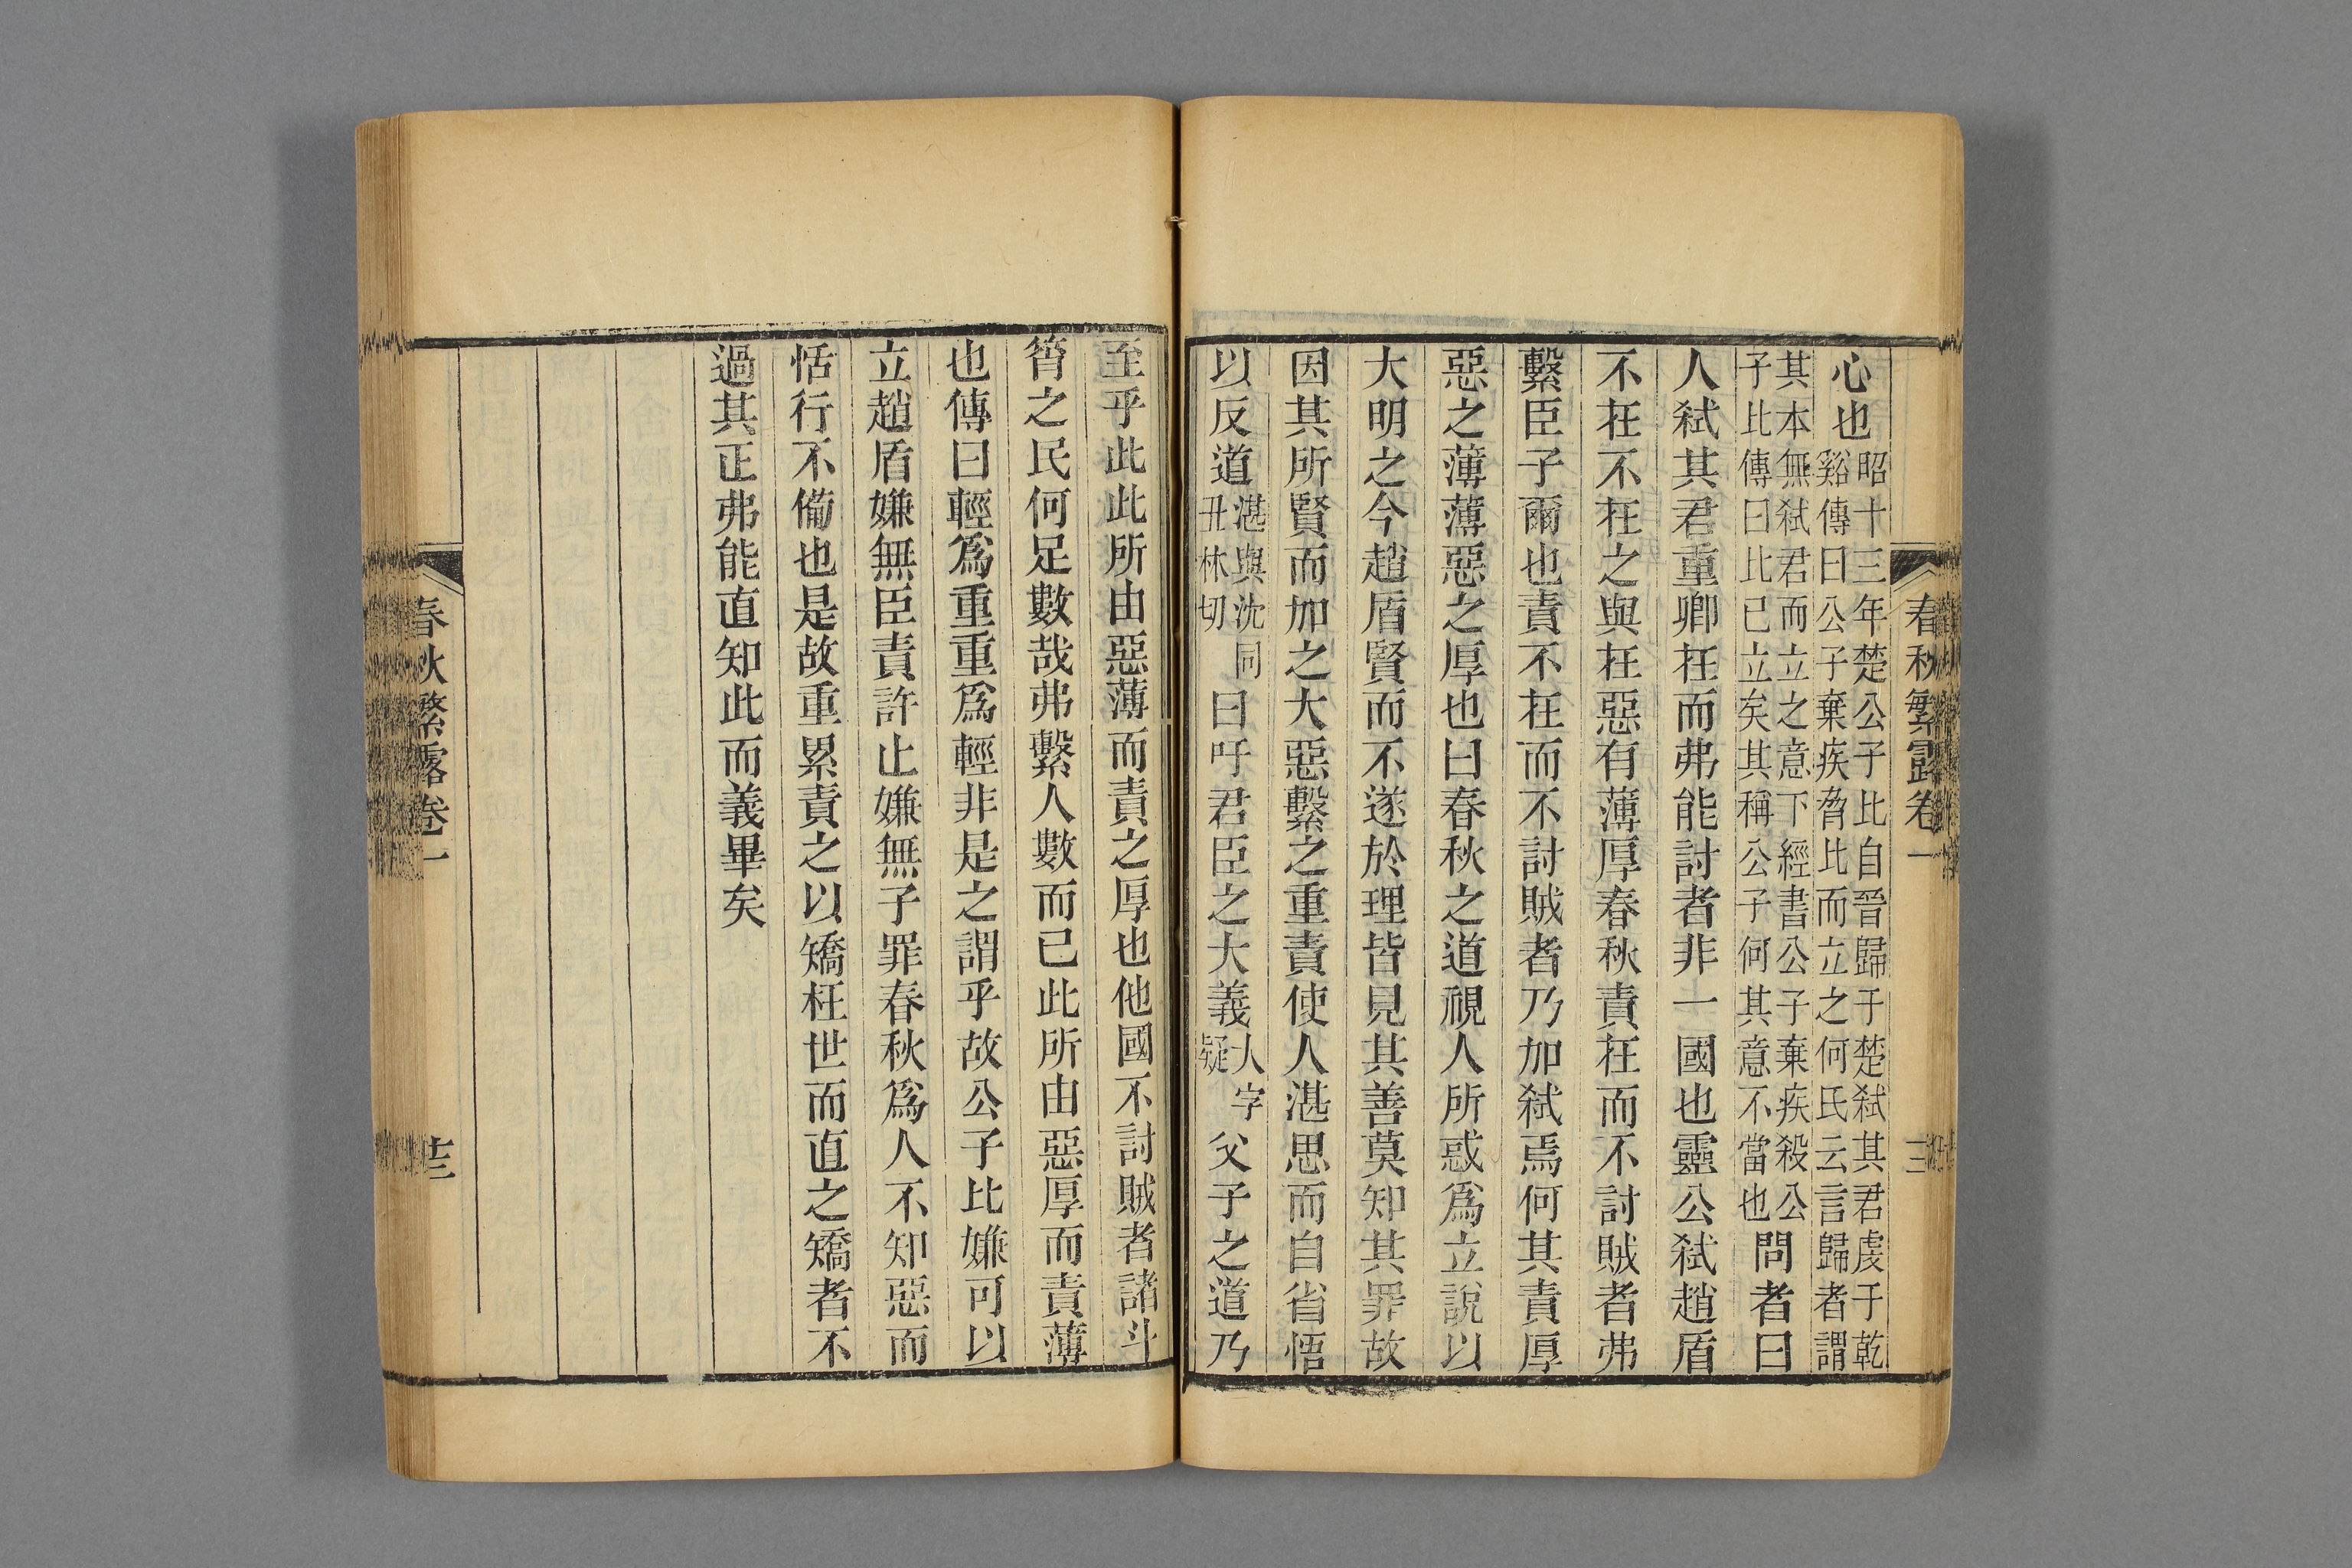 春秋繁露卷一
心也昭十三年楚公子比自晉歸于楚弑其君虔于乾
谿傳曰公子棄疾脅比而立之何氏云言歸者謂
其本無弑君而立之意下經書公子棄疾殺公
子比傳曰比已立矣其稱公子何其意不當也問者曰
人弑其君重卿在而弗能討者非一國也靈公弑趙盾
不在不在之與在惡有薄厚春秋責在而不討賊者弗
繫臣子爾也責不在而不討賊者乃加弑焉何其責厚
惡之薄薄惡之厚也曰春秋之道視人所惑爲立說以
大明之今趙盾賢而不遂於理皆見其善莫知其罪故
因其所賢而加之大惡繫之重責使人湛思而自省悟
以反道湛與沈同丑林切曰吁君臣之大義大字疑父子之道乃
至乎此此所由惡薄而責之厚也他國不討賊者諸斗
筲之民何足數哉弗繫人數而已此所由惡厚而責薄
也傳曰輕爲重重爲輕非是之謂乎故公子比嫌可以
立趙盾嫌無臣責許止嫌無子罪春秋爲人不知惡而
恬行不備也是故重累責之以矯枉世而直之矯者不
過其正弗能直知此而義畢矣
春秋繁露卷一